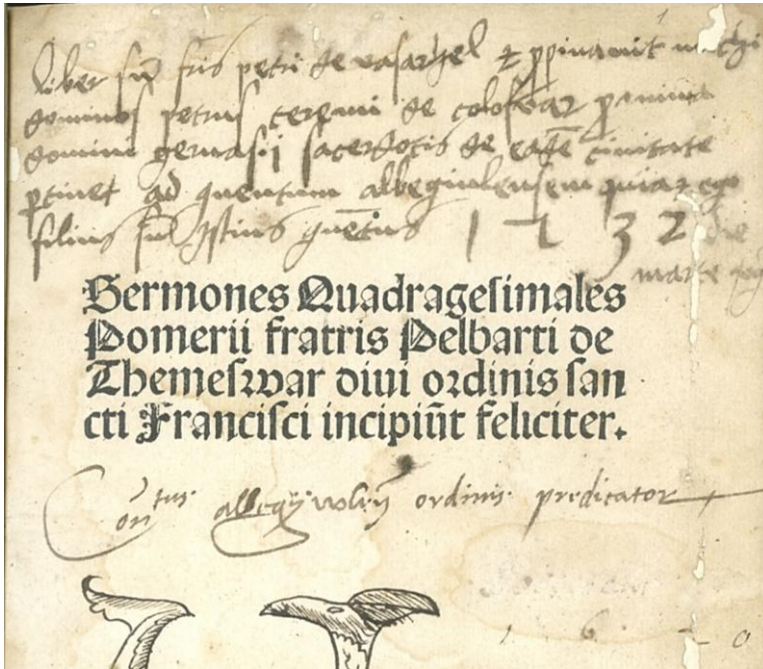 liber su fris petri de vasarhel et ppinauit michi
dominus petrus ceremi de coloswar
domini geruasij sacerdotis de eade ciuitate
ptinet ad quentum albegiulensem quiaz ego
filius su istius quetus 1 5 3 2 die
marte
Sermones Quadragesimales
Pomerii fratris Pelbarti de
Themeswar diui ordinis san
cti Francisci incipiūt feliciter.
Contus albegywlen ordinis predicator